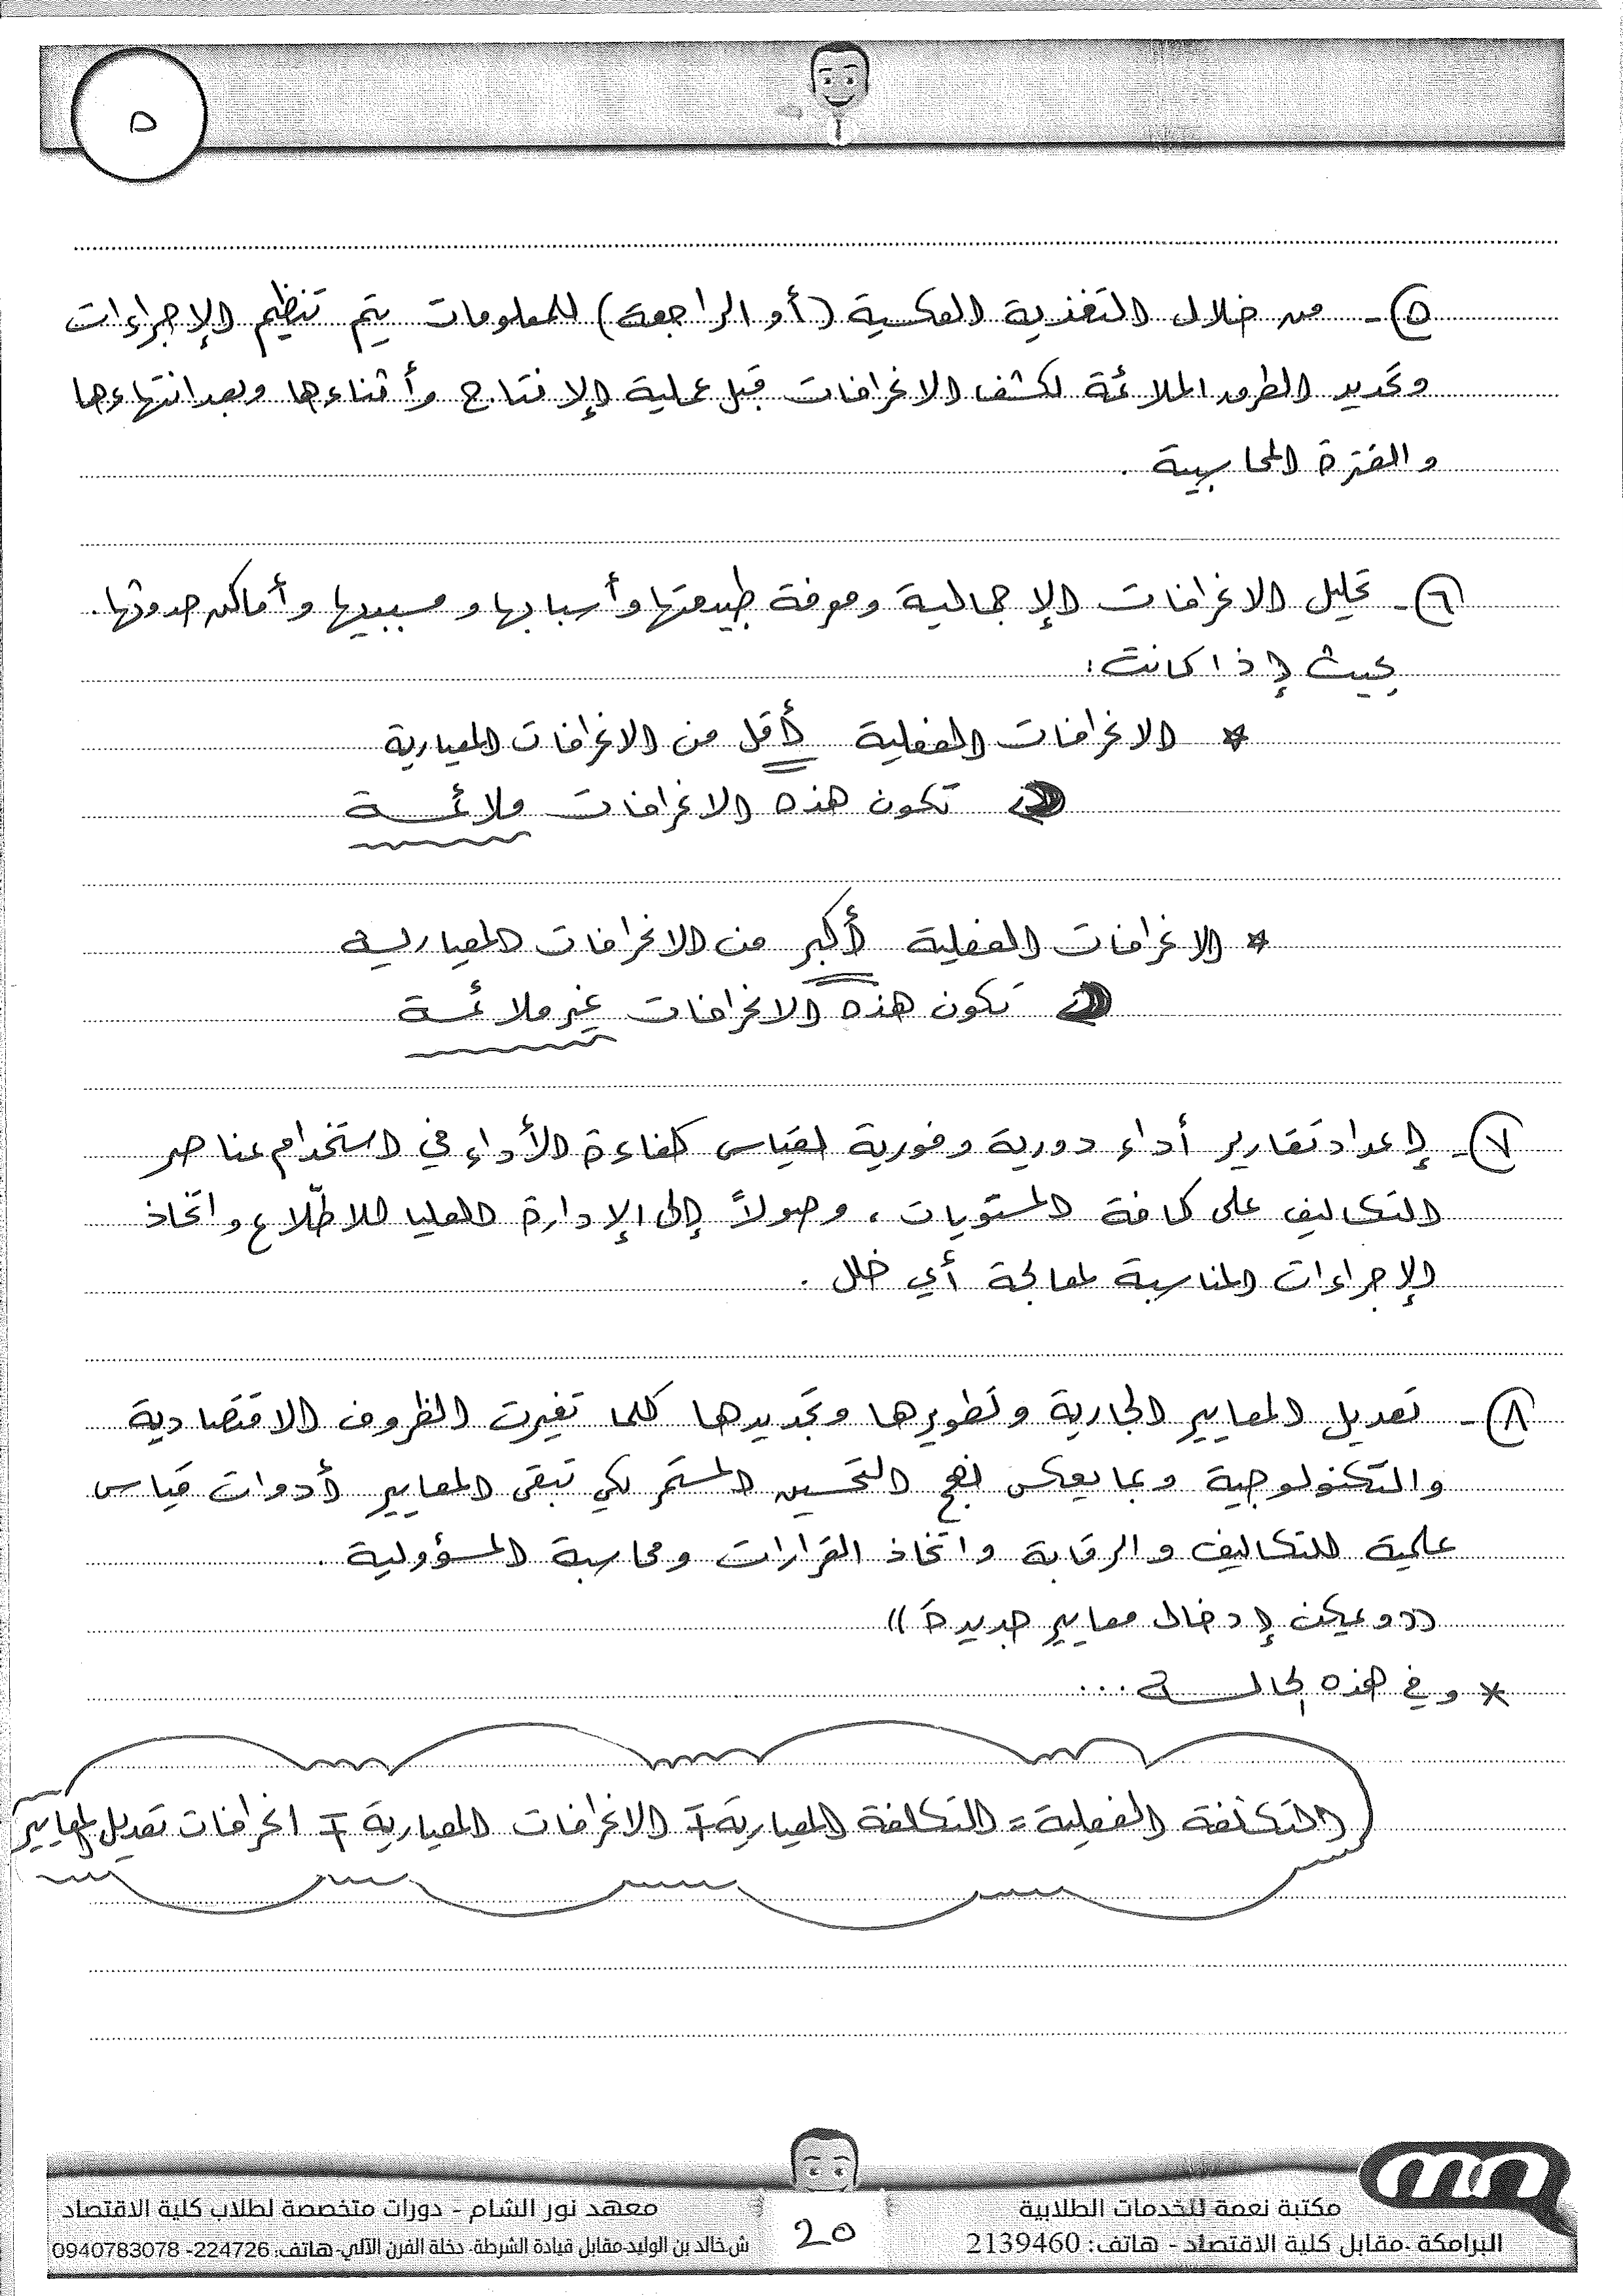 ٥
٥- من خلال التغذية العكسية (أو الراجعة) للمعلومات يتم تنظيم الإجراءات
وتحديد الطرق الملائمة لكشف الانحرافات قبل عملية الإنتاج وأثناءها وبعد انتهاءها
والفترة المحاسبية .
٦- تحليل الانحرافات الإجمالية ومعرفة طبيعتها وأسبابها ومسببيها وأماكن حدوثها.
بحيث إذا كانت:
* الانحرافات الفعلية أقل من الانحرافات المعيارية
تكون هذه الانحرافات ملائمة
* الانحرافات الفعلية أكبر من الانحرافات المعيارية
تكون هذه الانحرافات غير ملائمة
٧- إعداد تقارير أداء دورية وفورية لقياس كفاءة الأداء في استخدام عناصر
التكاليف على كافة المستويات ، وصولاً إلى الإدارة العليا للاطّلاع واتخاذ
الإجراءات المناسبة لمعالجة أي خلل .
٨- تعديل المعايير الجارية وتطويرها وتجديدها كلما تغيرت الظروف الاقتصادية
والتكنولوجية وبما يعكس نهج التحسين المستمر لكي تبقى المعايير أدوات قياس
علمية للتكاليف والرقابة واتخاذ القرارات ومحاسبة المسؤولية .
((ويمكن إدخال معايير جديدة))
* وفي هذه الحالة ...
التكلفة الفعلية = التكلفة المعيارية ∓ الانحرافات المعيارية ∓ انحرافات تعديل المعايير
مكتبة نعمة للخدمات الطلابية
البرامكة -مقابل كلية الاقتصاد - هاتف: 2139460
20
معهد نور الشام - دورات متخصصة لطلاب كلية الاقتصاد
ش.خالد بن الوليد-مقابل قيادة الشرطة- دخلة الفرن الآلي-هاتف: 224726- 0940783078